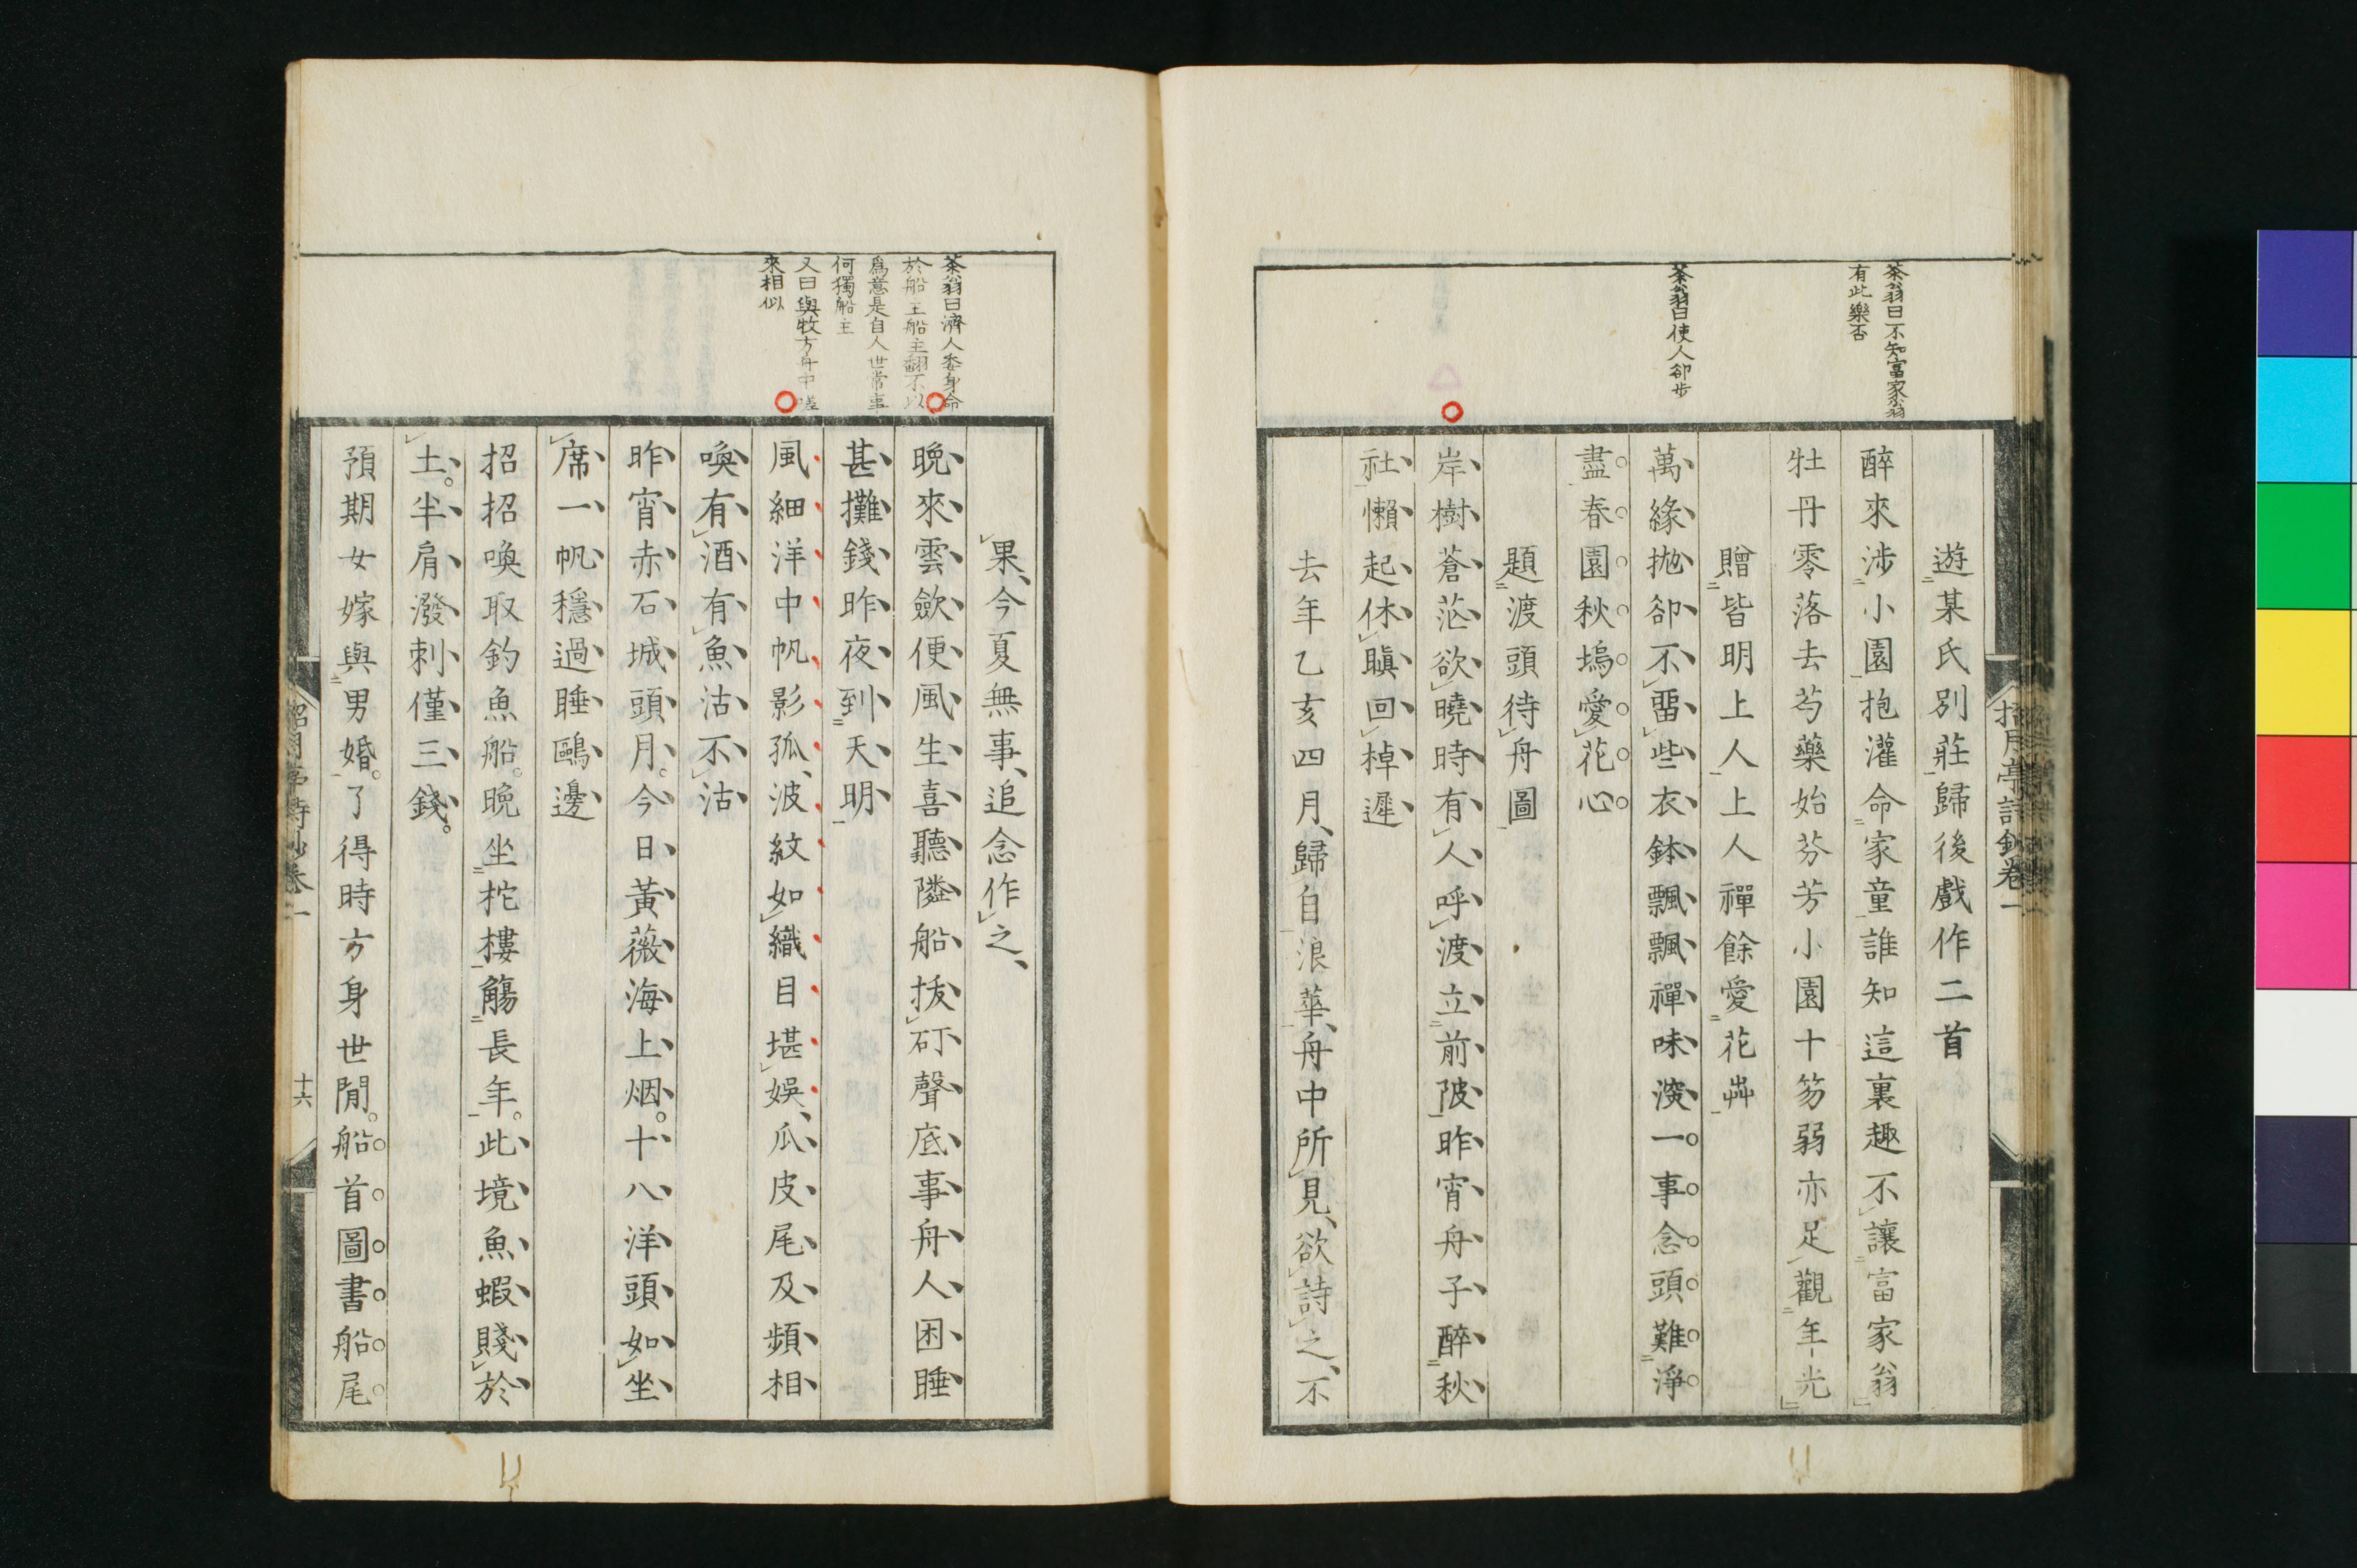 茶翁曰不知富家翁
有此樂否
茶翁曰使人卻步
遊某氏別莊歸後戲作二首
醉來涉小園抱灌命家童誰知這裏趣不讓富家翁
牡丹零落去芍藥始芬芳小園十笏弱亦足觀年光
贈皆明上人上人禪餘愛花茻
萬緣拋卻不畱些衣鉢飄飄禪味深一事念頭難淨
盡春園秋塢愛花心
題渡頭待舟圖
岸樹蒼茫欲曉時有人呼渡立前陂昨宵舟子醉秋
社懶起休瞋回棹遲
去年乙亥四月歸自浪華舟中所見欲詩之不
茶翁曰濟人委身命
於船主船主翻不以
爲意是自人世常事
何獨船主
又曰與牧方舟中
來相似
果今夏無事追念作之
晩來雲斂便風生喜聽隣船拔矴聲底事舟人困睡
甚攤錢昨夜到天明
風細洋中帆影孤波紋如織目堪娛瓜皮尾及頻相
喚有酒有魚沽不沽
昨宵赤石城頭月今日黃薇海上烟十八洋頭如坐
席一帆穩過睡鷗邊
招招喚取釣魚船晩坐柁樓觴長年此境魚蝦賤於
土半肩潑剌僅三錢
預期女嫁與男婚了得時方身世閒船首圖書船尾
十六